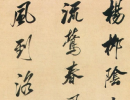 楊柳陰
流鶯春
風到洛